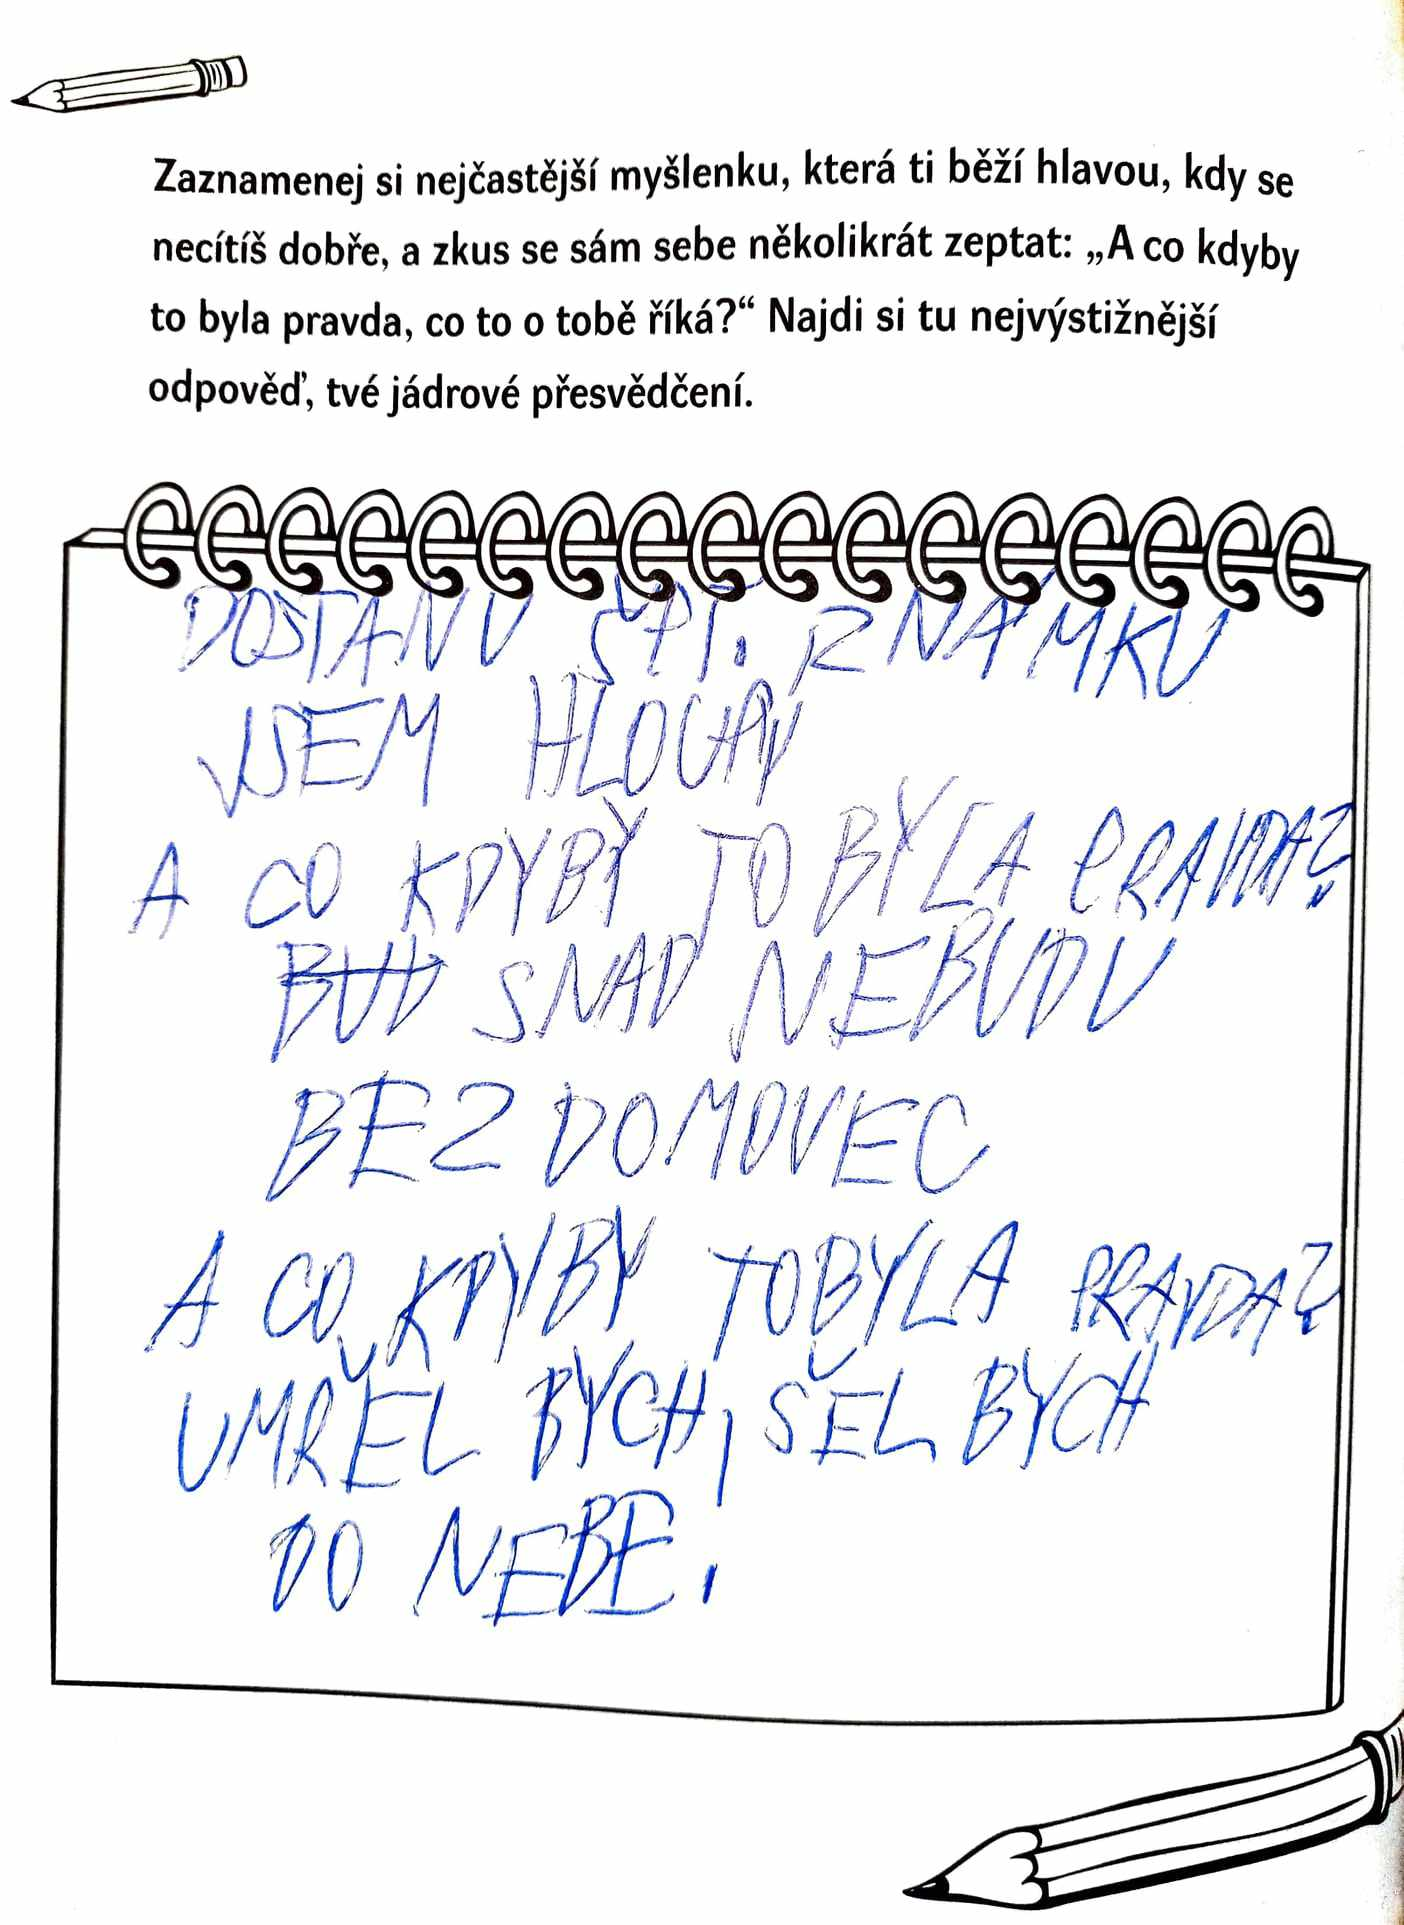 Zaznamenej si nejčastější myšlenku, která ti běží hlavou, kdy se
necítíš dobře, a zkus se sám sebe několikrát zeptat: „A co kdyby
to byla pravda, co to o tobě říká?“ Najdi si tu nejvýstižnější
odpověď, tvé jádrové přesvědčení.
DOSTANU ŠPT. ZNÁMKU
JSEM HLOUPÝ
A CO KDYBY TO BYLA PRAVDA?
BUD SNAD NEBUDU
BEZDOMOVEC
A CO KDYBY TO BYLA PRAVDA?
UMŘEL BYCH, ŠEL BYCH
DO NEBE.